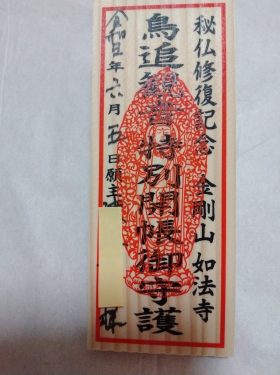 秘仏修復記念 金剛山 如法寺
鳥追観音特別開帳御守護
令和五年六月五日願主
様